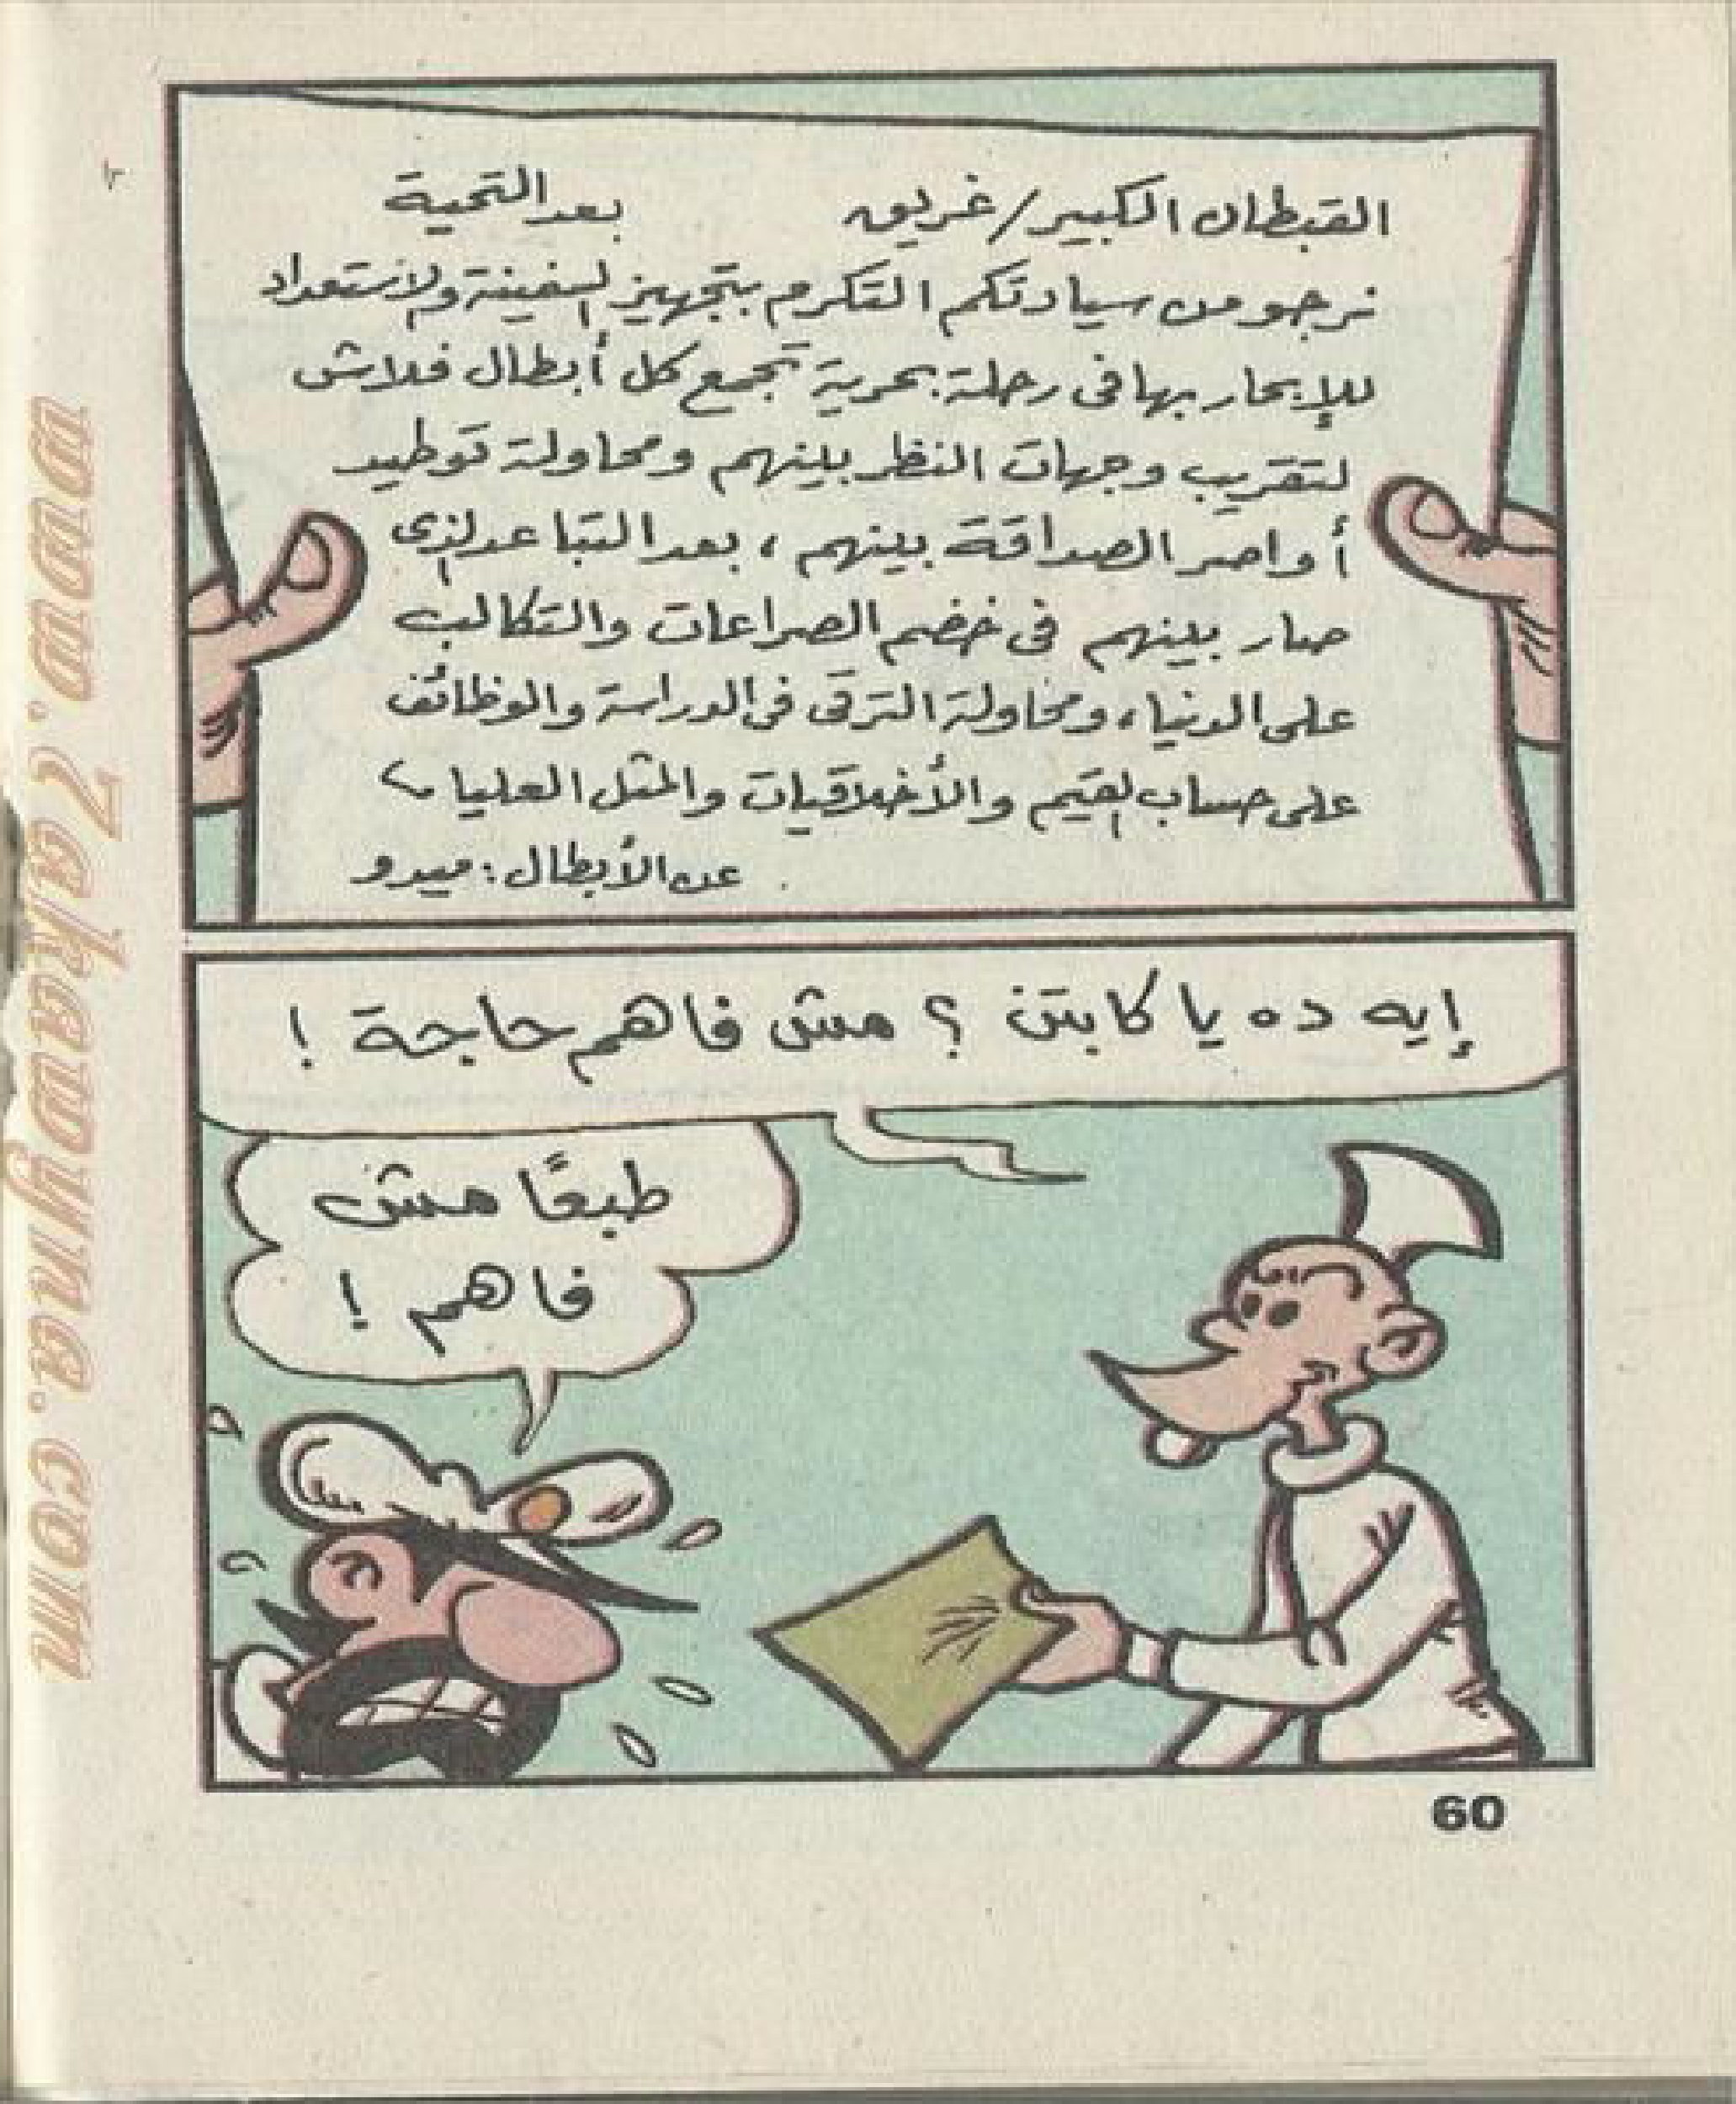 القبطان الكبير/غريق بعد التحية
نرجو من سيادتكم التكرم بتجهيز السفينة والاستعداد
للإبحار بها فى رحلة بحرية تجمع كل أبطال فلاش
لتقريب وجهات النظر بينهم ومحاولة توطيد
أواصر الصداقة بينهم، بعد التباعد الذى
صار بينهم فى خضم الصراعات والتكالب
على الدنيا، ومحاولة الترقى فى الدراسة والوظائف
على حساب القيم والأخلاقيات والمثل العليا
عن الأبطال: ميدو
إيه ده يا كابتن؟ مش فاهم حاجة!
طبعًا مش
فاهم!
60
www.Zakaayuna.com